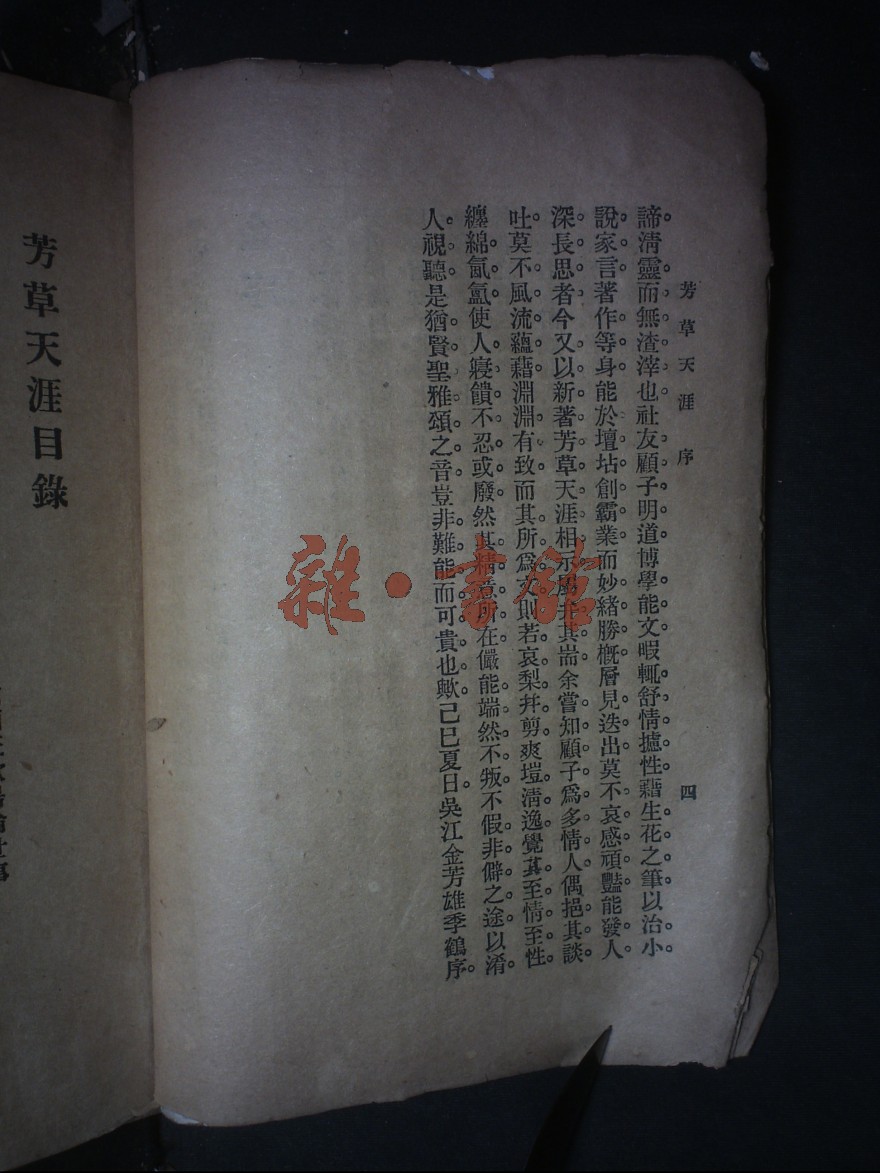 芳草天涯 序
四
諦。清靈而無渣滓也。社友顧子明道。博學能文。暇輒舒情攄性。藉生花之筆。以治小
說家言。著作等身。能於壇坫創霸業。而妙緒勝槪。層見迭出。莫不哀感頑豔。能發人
深長思者。今又以新著芳草天涯相示。屬弁其耑。余嘗知顧子爲多情人。偶挹其談
吐。莫不風流蘊藉。淵淵有致。而其所爲文。則若哀梨幷剪。爽塏清逸。覺其至情至性。
纏綿氤氳。使人寢饋不忍或廢。然其精意所在。儼能端然不叛。不假非僻之途。以淆
人視聽。是猶賢聖雅頌之音。豈非難能而可貴也歟。己巳夏日。吳江金芳雄季鶴序。
芳草天涯目錄
雜·書館